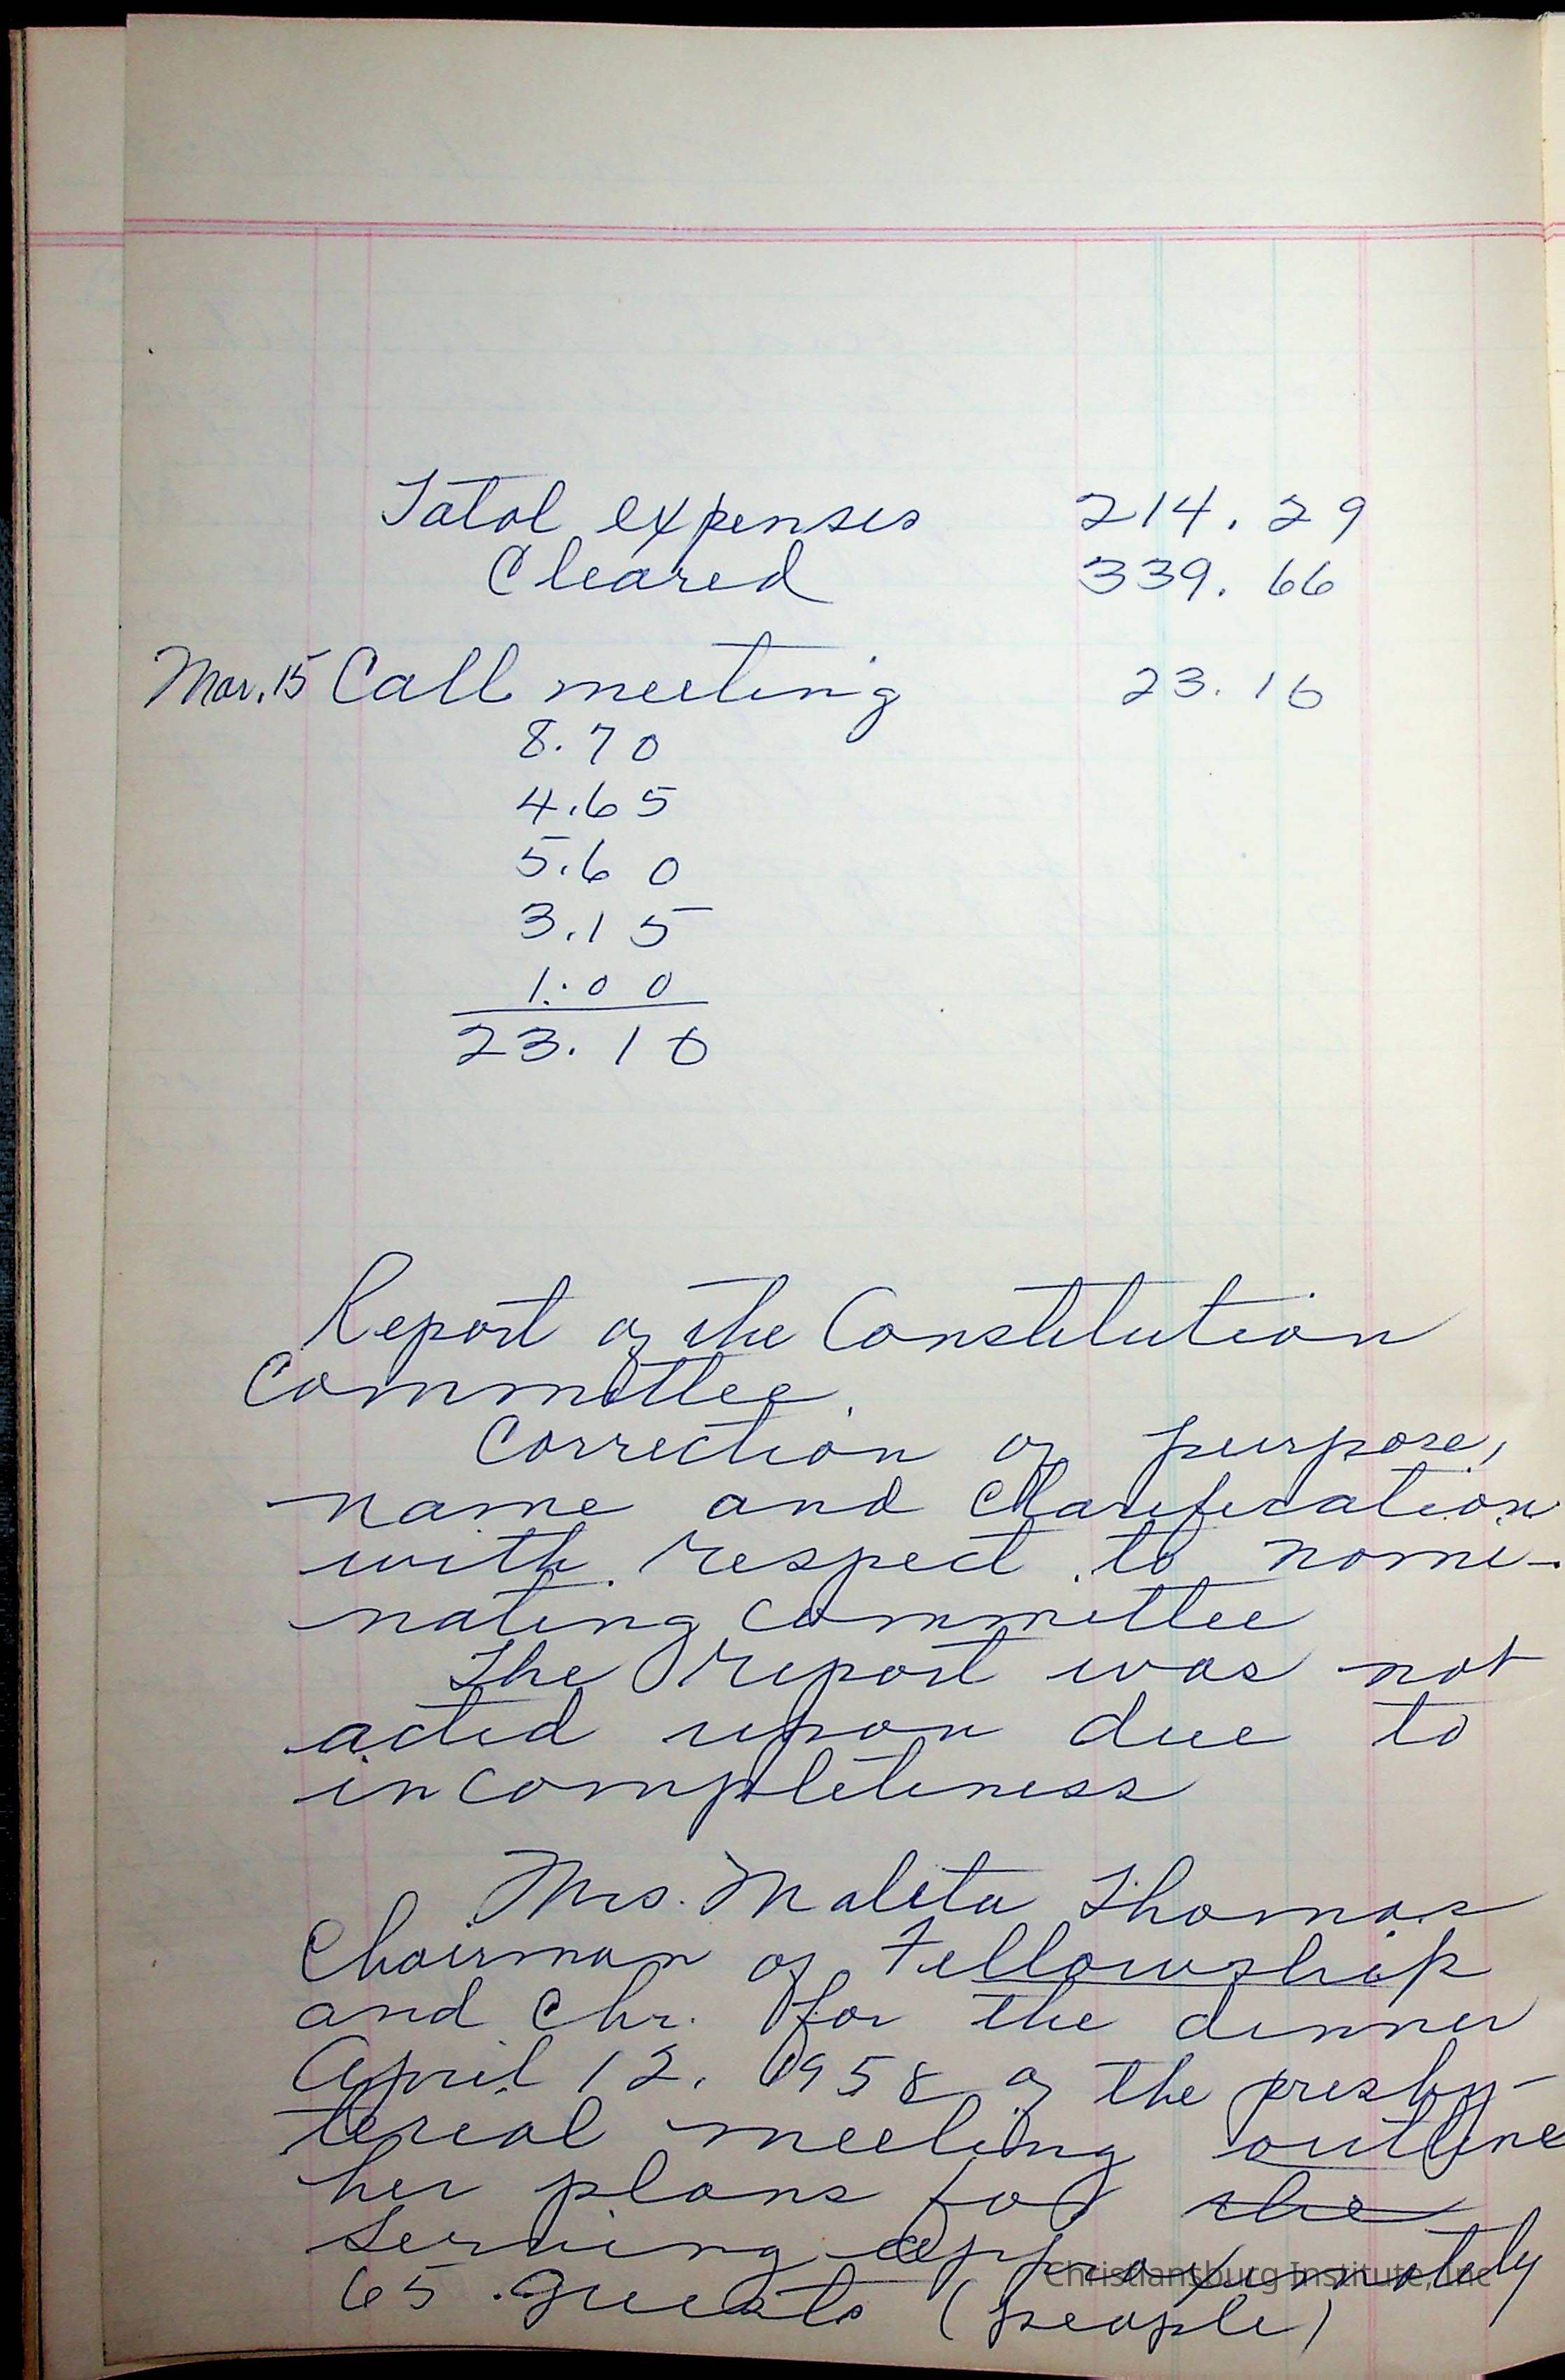 Total expenses 214.29
Cleared 339.66
Mar. 15 Call meeting 23.10
8.70
4.65
5.60
3.15
1.00
23.10
Report of the Constitution
Committee.
Correction of purpose,
name and Clarification
with respect to nomi-
nating committee
The report was not
acted upon due to
incompleteness
Mrs. Maleta Thomas
Chairman of Fellowship
and Chr. for the dinner
April 12, 1958 of the presby-
terial meeting outline
her plans for the
serving approximately
65 guests (people)
Christiansburg Institute, Inc